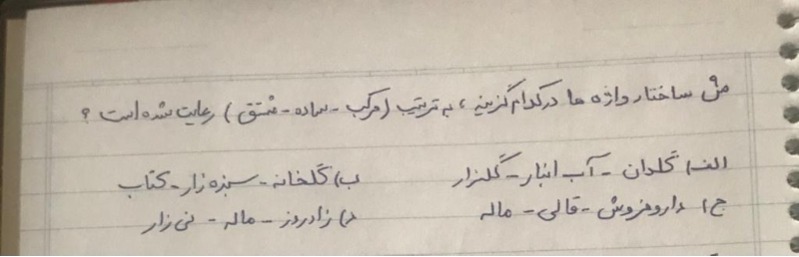 ساختار واژه ها در کدام گزینه، به ترتیب (مرکب - ساده - مشتق) رعایت شده است؟
الف) گلدان - آب انبار - گلزار ب) گلخانه - سبزه زار - کتاب
ج) دارو فروش - قالی - ماله د) زادروز - ماله - نی زار